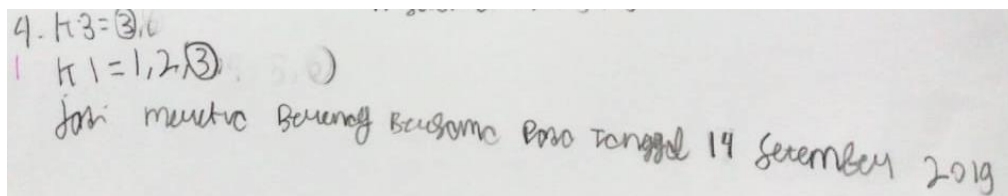 4. K3 = 3,6
1 K1 = 1,2,3
Jadi mereka Berenang Bersama Pada Tanggal 14 September 2019